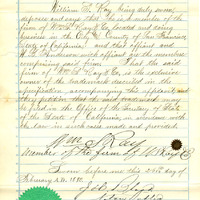 William L. Ray being duly sworn
deposes and says that he is a member of the
firm of Wm L. Ray & Co. located and doing
business in the City & County of San Francisco
State of California; and that affiant and
are the members
comprising said firm. That the said
firm of Wm L. Ray & Co. is the exclusive
owner of the trademark described in the
specification accompanying this affidavit, and
they petition that the said trademark may
be filed in the Office of the Secretary of State
of the State of California, in accordance with
the law in such case made and provided.
Wm L Ray
member of the firm of W L Ray & Co.
Sworn before me this 24th day of
February A.D. 1880.